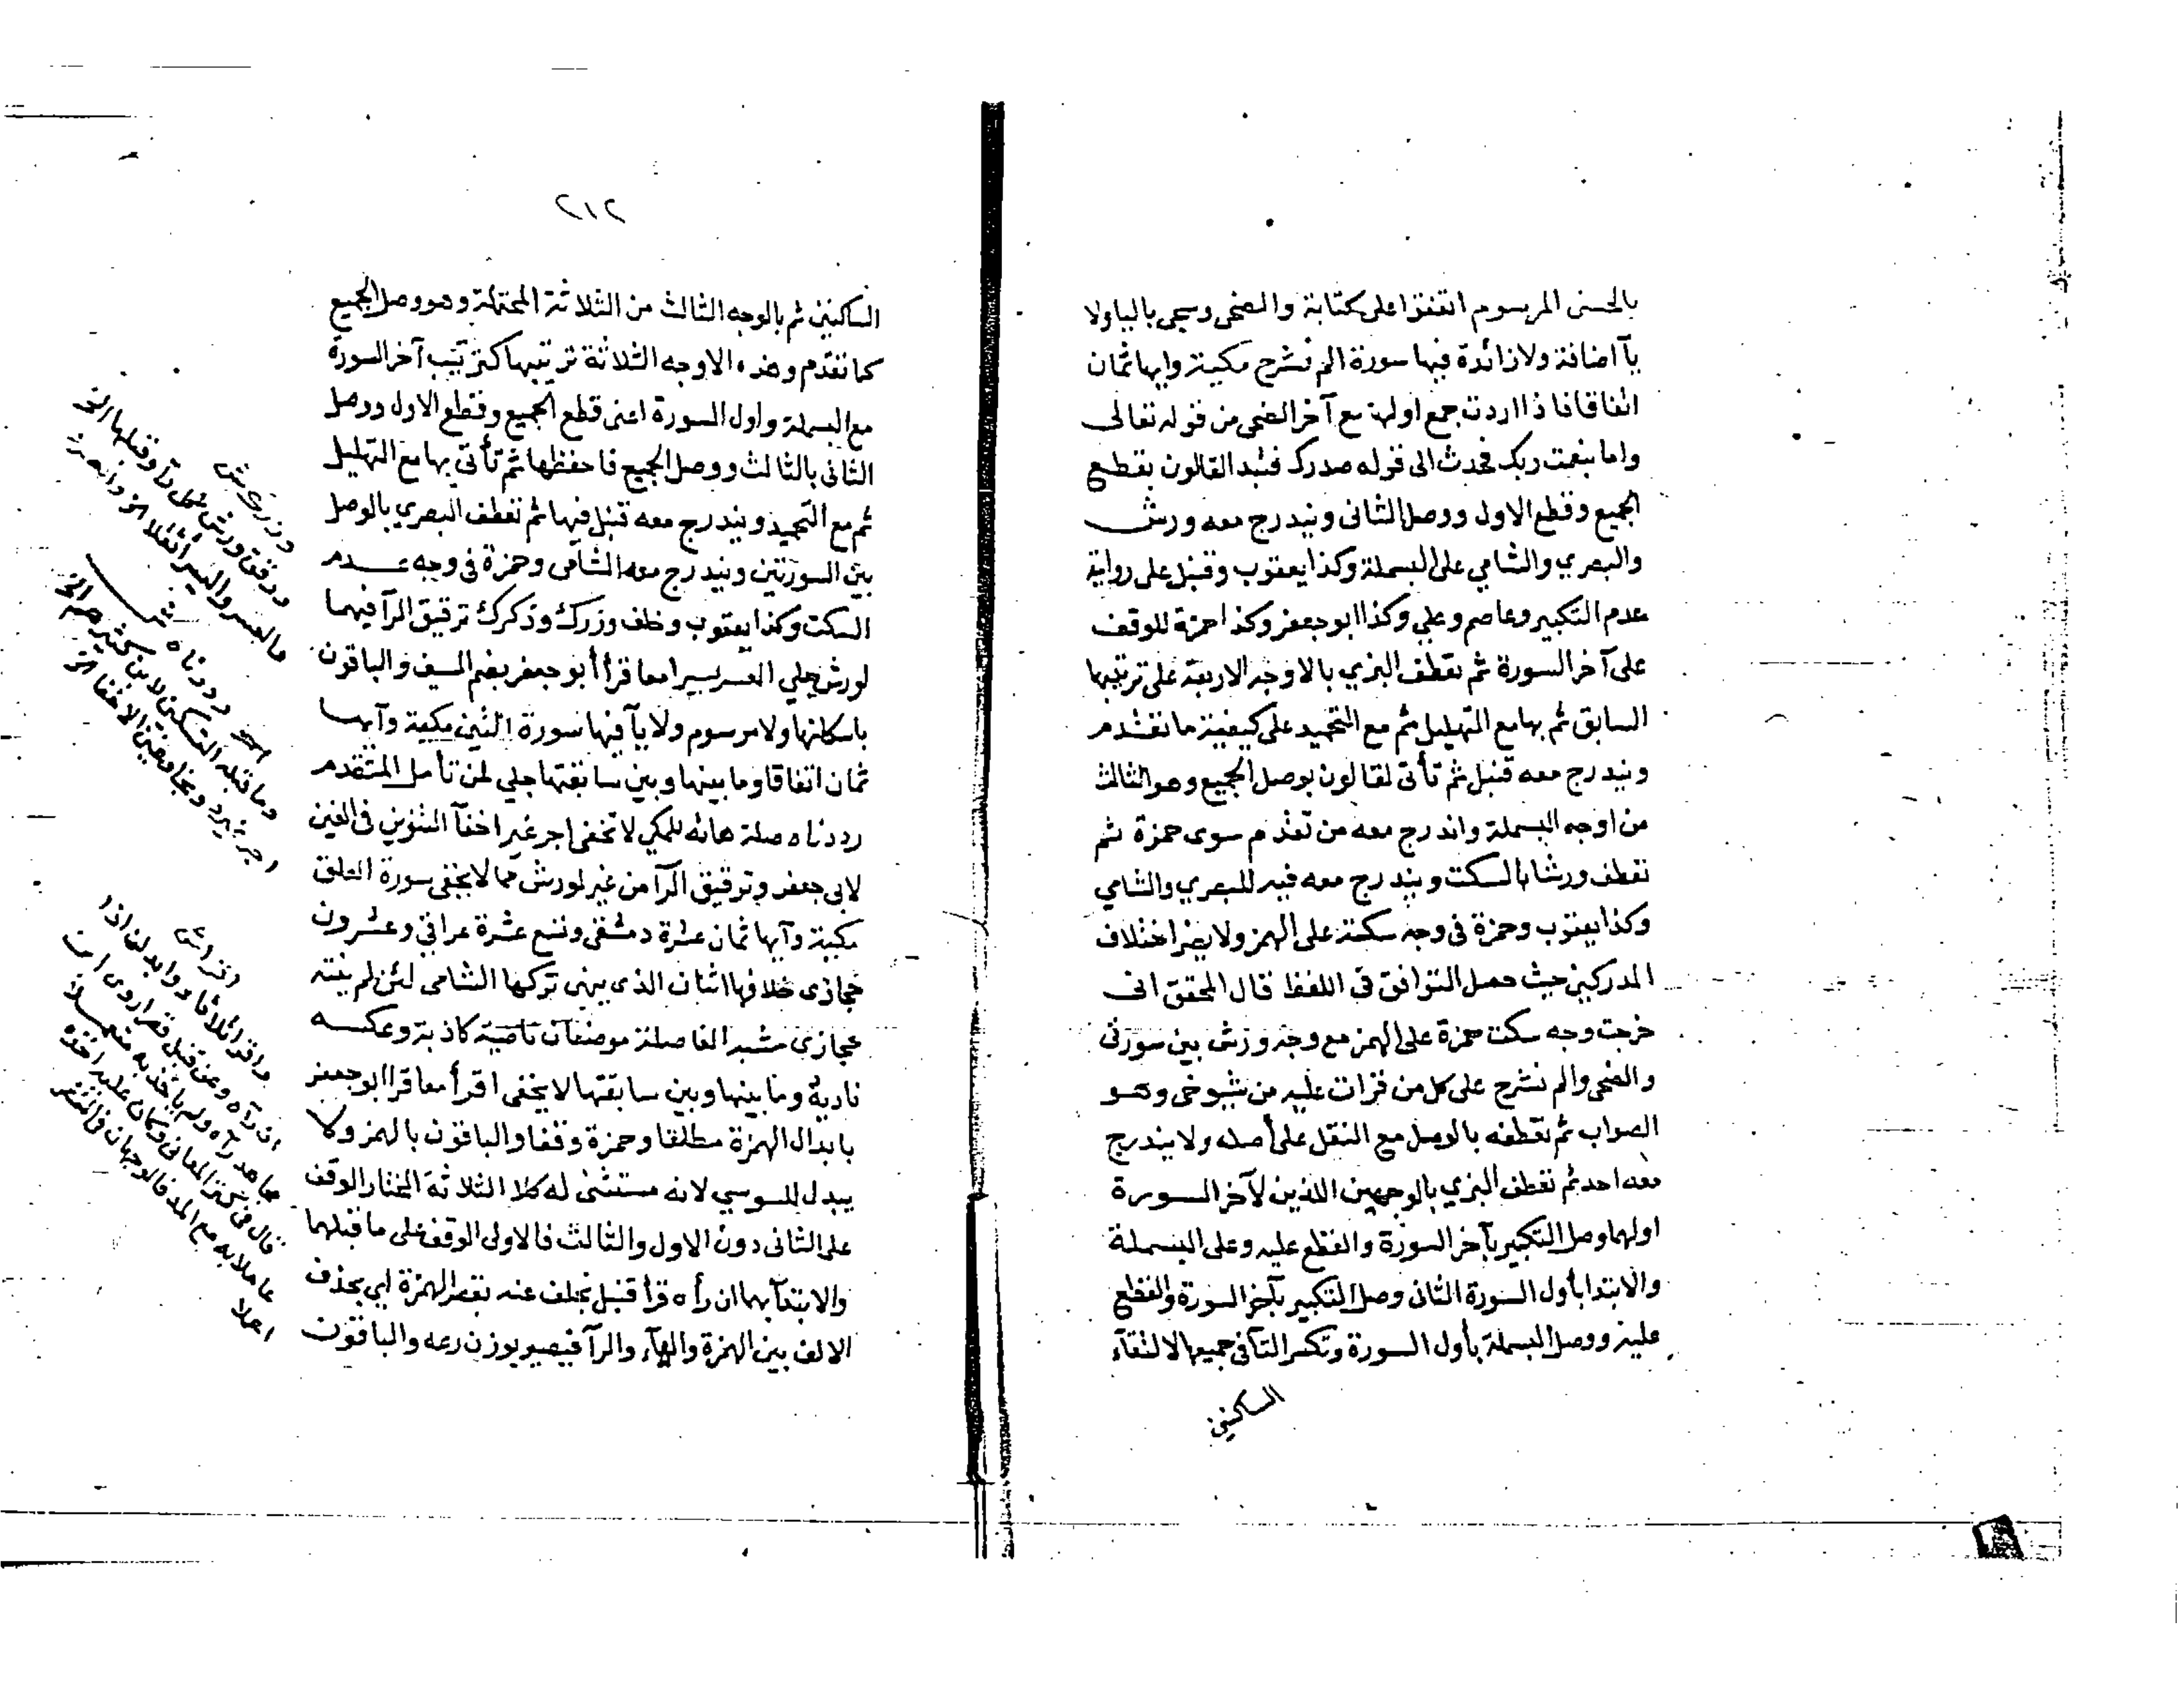 بالحسنى المرسوم اتفقوا على كتابة والضحى وسجى باليا ولا
يآ اضافة ولا زائدة فيها سورة الم نشرح مكية وايها ثمان
اتفاقا فاذا اردت جمع اولها مع آخر الضحى من قوله تعالى
واما بنعمت ربك فحدث الى قوله صدرك فتبدا لقالون بقطع
الجميع وقطع الاول ووصل الثانى ويندرج معه ورش
والبصري والشامي على البسملة وكذا يعقوب وقنبل على رواية
عدم التكبير وعاصم وعلي وكذا ابو جعفر وكذا حمزة للوقف
على آخر السورة ثم تعطف البزي بالاوجه الاربعة على ترتيبها
السابق ثم بها مع التهليل ثم مع التحميد على كيفية ما تقدم
ويندرج معه قنبل ثم تأتى لقالون بوصل الجميع وهو الثالث
من اوجه البسملة واندرج معه من تقدم سوى حمزة ثم
تعطف ورشا بالسكت ويندرج معه فيه للبصري والشامي
وكذا يعقوب وحمزة فى وجه سكته على الهمز ولا يضر اختلاف
المدركين حيث حصل التوافق فى اللفظ قال المحقق انى
خرجت وجه سكت حمزة على الهمز مع وجه ورش بين سورتى
والضحى والم نشرح على كل من قرات عليه من شيوخى وهو
الصواب ثم تعطفه بالوصل مع النقل على أصله ولا يندرج
معه احد ثم تعطف البزي بالوجهين اللذين لآخر السورة
اولهما وصل التكبير بآخر السورة والقطع عليه وعلى البسملة
والابتدا بأول السورة الثانى وصل التكبير بآخر السورة والقطع
عليه ووصل البسملة بأول السورة وتكسر الثآ فى جميعها لالتقآء
الساكنين
٢١٢
الساكنين ثم بالوجه الثالث من الثلاثة المحتملة وهو وصل الجميع
كما تقدم وهذه الاوجه الثلاثة ترتيبها كترتيب آخر السورة
مع البسملة واول السورة اعنى قطع الجميع وقطع الاول ووصل
الثانى بالثالث ووصل الجميع فاحفظها ثم تأتى بها مع التهليل
ثم مع التحميد ويندرج معه قنبل فيها ثم تعطف البصري بالوصل
بين السورتين ويندرج معه الشامى وحمزة فى وجه عدم
السكت وكذا يعقوب وخلف وزرك وذكرك ترقيق الرآ فيهما
لورش جلي العسر يسرا معا قرأ أبو جعفر بضم السين والباقون
باسكانها ولا مرسوم ولا يآ فيها سورة التين مكية وآيها
ثمان اتفاقا وما بينها وبين سابقتها جلي لمن تأمل المتقدم
رددناه صلة هائه للمكي لا تخفى اجر غير اخفآ التنوين فى الغين
لابى جعفر وترقيق الرآ من غير لورش مما لا يخفى سورة العلق
مكية وآيها ثمان عشرة دمشقى وتسع عشرة عراقي وعشرون
حجازى خلافها اثنان الذى ينهى تركها الشامى لئن لم ينته
حجازى مشبه الفاصلة موضعان ناصية كاذبة وعكسه
ناديه وما بينها وبين سابقتها لا يخفى اقرأ معا قرا ابو جعفر
بابدال الهمزة مطلقا وحمزة وقفا والباقون بالهمز ولا
يبدل للسوسي لانه مستثنى له كلا الثلاثة المختار الوقف
على الثانى دون الاول والثالث فالاولى الوقف على ما قبلهما
والابتدآ بهما ان رأه قرأ قنبل بخلف عنه بقصر الهمزة اي بحذف
الالف بين الهمزة والهآء والرآ فيصير بوزن رعه والباقون
ورقق ورش كل رآ وقبلها الخ
فالعسر واليسر أثقلا
رددناه
وما قبله التسكين لابن كثيرهم الخ
واقرأ
ان رآه وعن قنبل قصرا روى ابن
مجاهد رآه ولم ياخذ به متعملا
قال فى كنز المعانى وكان عليه اخذه